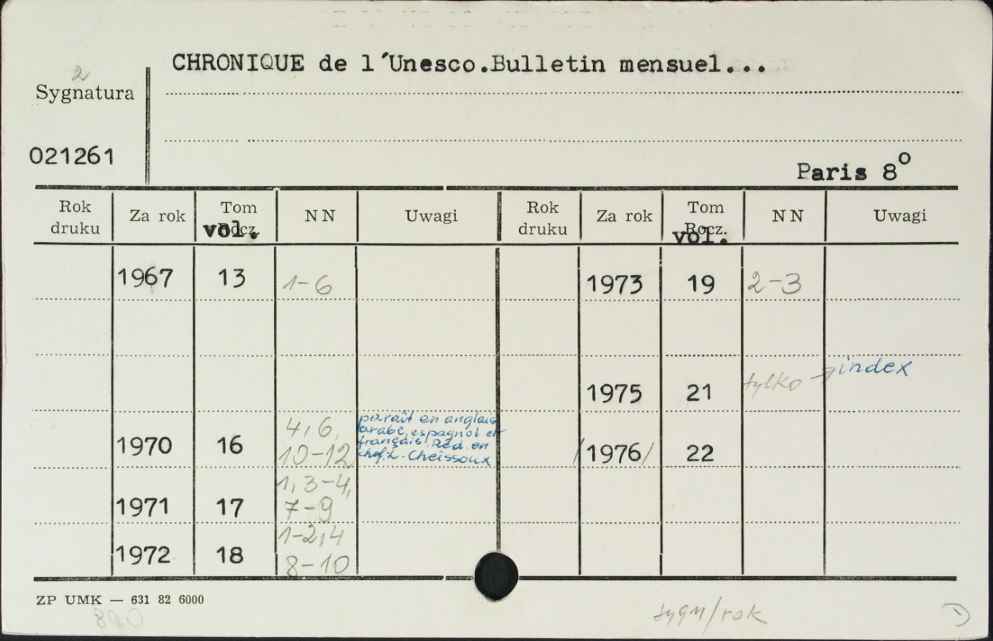 CHRONIQUE de l'Unesco.Bulletin mensuel...
2
Sygnatura
021261
Paris 8°
Rok druku Za rok Tom Rocz. vol. NN Uwagi Rok druku Za rok Tom Rocz. vol. NN Uwagi
1967 13 1-6 1973 19 2-3
1975 21 tylko index
1970 16 4,6, 10-12
paraît en anglais
arabe, espagnol et
français. Réd. en
chef, L. Cheissoux
/1976/ 22
1971 17 1, 3-4, 7-9
1972 18 1-2,4 8-10
ZP UMK — 631 82 6000
sygn/rok